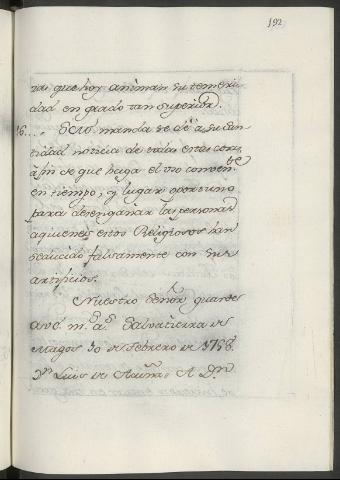 192
que hoy animan su temeri-
dad en grado tan superior.
16.... manda se dé a su San-
tidad noticia de todas estas
a fin de que haga el uso conven.te
en tiempo, y lugar oportuno
para desengañar las personas
a quienes estos Religiosos han
seducido falsamente con sus
artificios.
Nuestro Señor guarde
a v.e m.s a.s Salvatierra de
Magos 10 de Febrero de 1758.
Dn Luis de Acuña A Dn